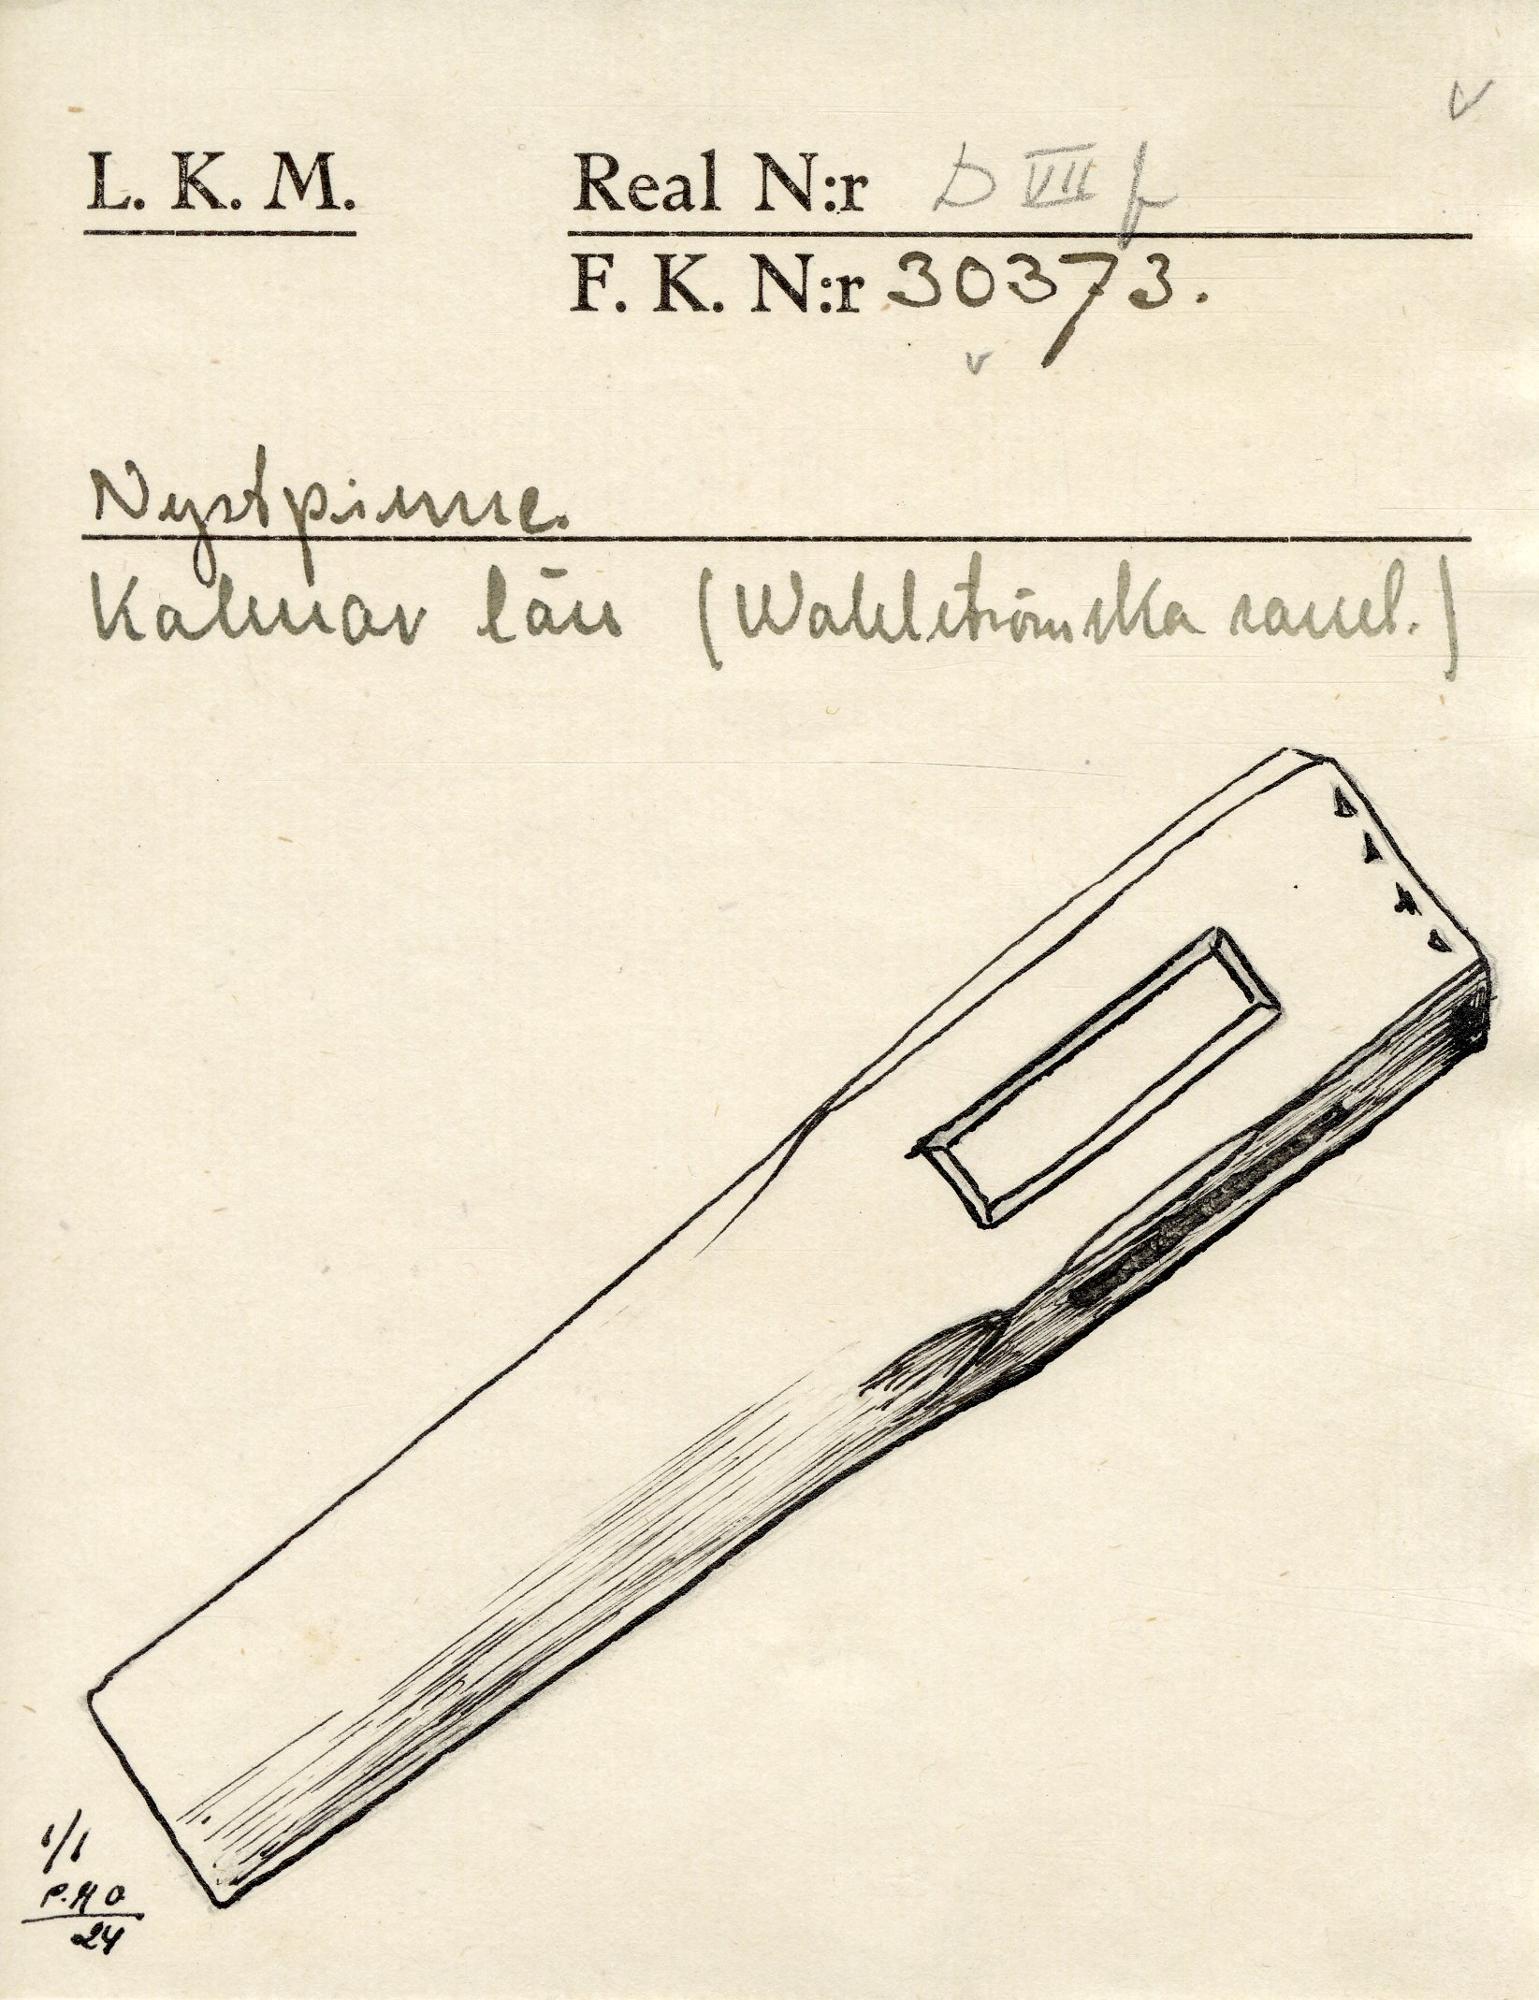 L. K. M.
Real N:r D VII f
F. K. N:r 30373.
Nystpinne.
Kalmar län (Wahlströmska saml.)
1/1
P.M O
24